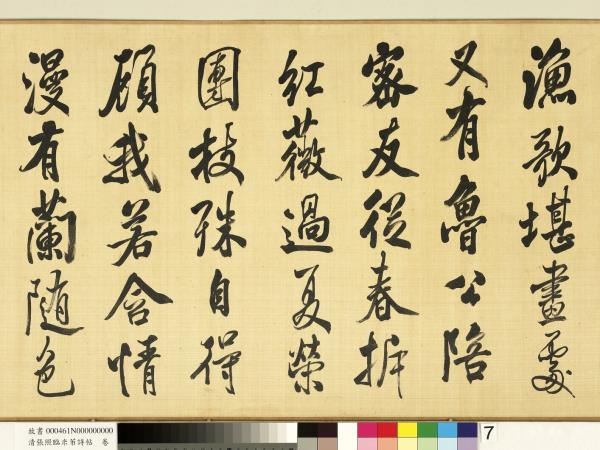 漁歌堪畫處
又有魯公陪
密友從春拆
紅薇過夏榮
團枝殊自得
顧我若含情
漫有蘭隨色
故書 000461N000000000
清張照臨米芾詩帖 卷
7